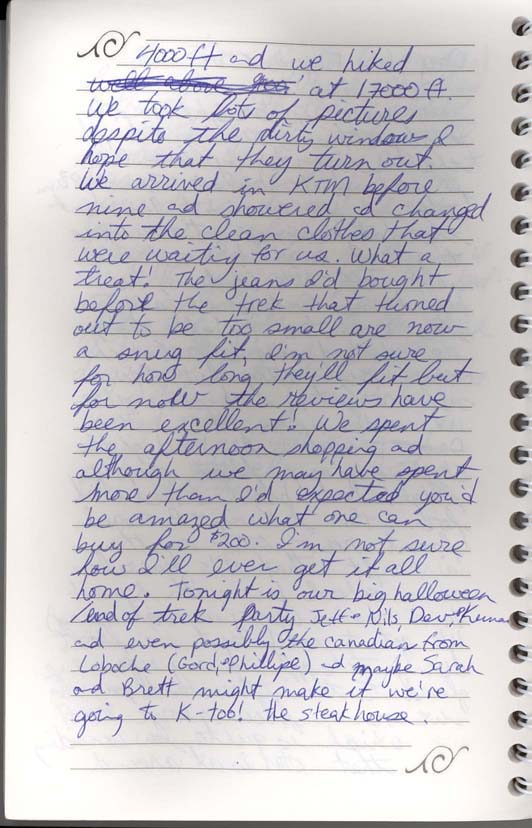 4000 ft and we hiked
at 17000 ft.
We took lots of pictures
despite the dirty windows &
hope that they turn out.
We arrived in KTM before
nine ad showered ad changed
into the clean clothes that
were waiting for us. What a
treat! The jeans I'd bought
before the trek that turned
out to be too small are now
a snug fit, I'm not sure
for how long they'll fit but
for now the reviews have
been excellent! We spent
the afternoon shopping ad
although we may have spent
more than I'd expected you'd
be amazed what one can
buy for $200. I'm not sure
how I'll ever get it all
home. Tonight is our big halloween
/end of trek party Jeff + Nils, Dev +
ad even possibly the canadian from
Loboche (Gord, + Phillipe) ad maybe Sarah
ad Brett might make it we're
going to K-too! the steakhouse.